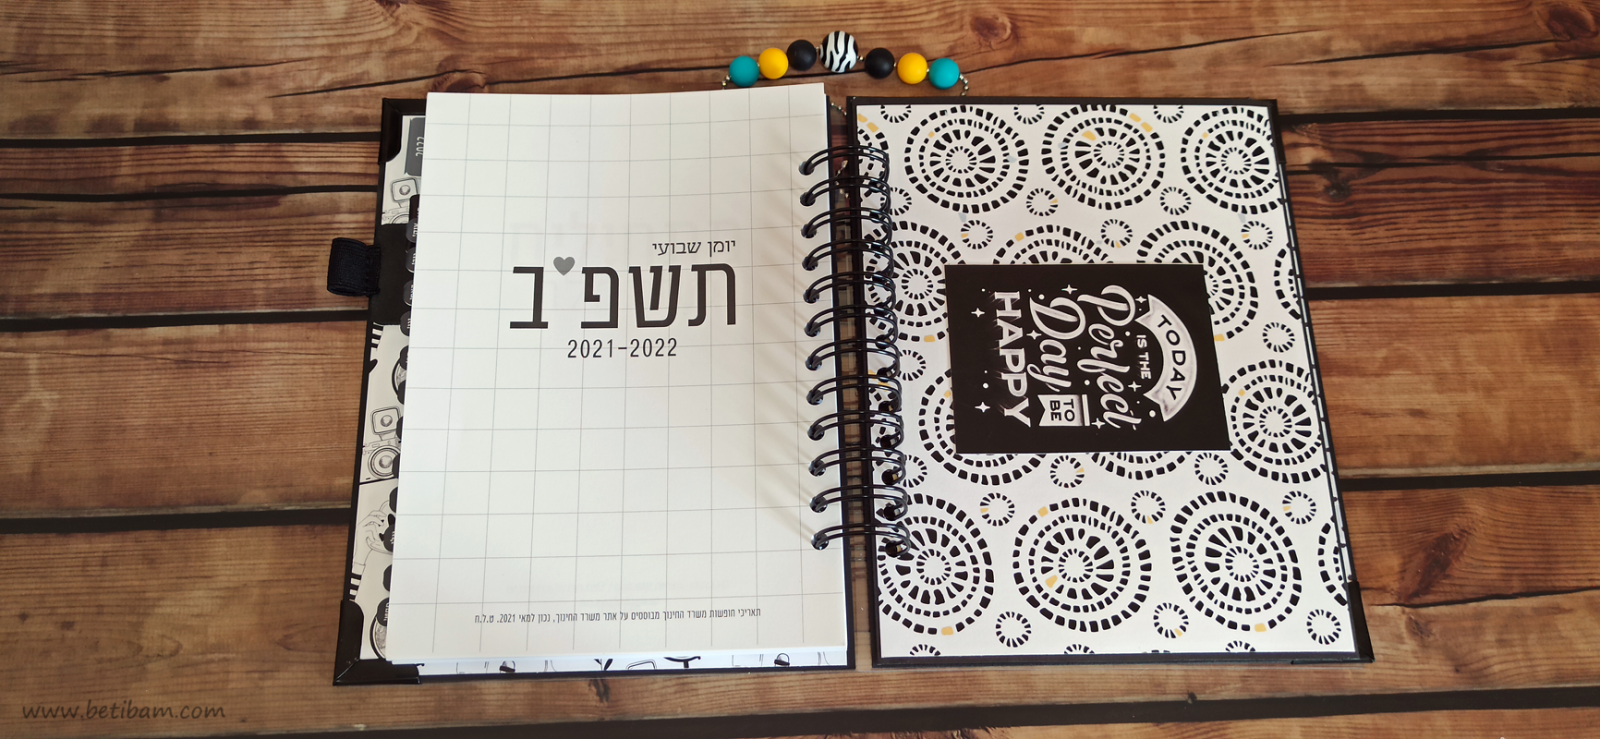 יומן שבועי
תשפ'ב
2021-2022
תאריכי חופשות משרד החינוך מבוססים על אתר משרד החינוך, נכון למאי 2021. ט.ל.ח
TODAY
IS THE
Perfect
Day TO BE
HAPPY
2022
www.betibam.com